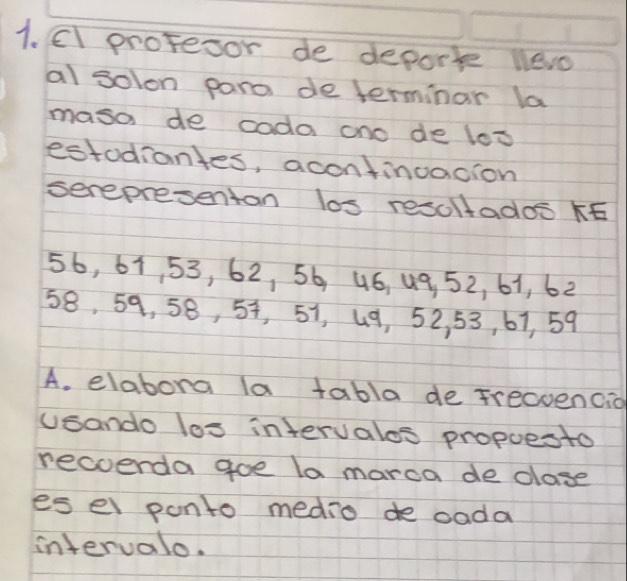 1. El profesor de deporte llevo
al solon para determinar la
masa de cada uno de los
estodiantes, acontinuacion
serepresentan los resoltados KE
56, 61, 53, 62, 56, 46, 49, 52, 61, 62
58, 59, 58, 57, 51, 49, 52, 53, 61, 59
A. elabora la tabla de Frecuencia
usando los intervalos propuesto
recuerda que la marca de clase
es el punto medio de cada
intervalo.